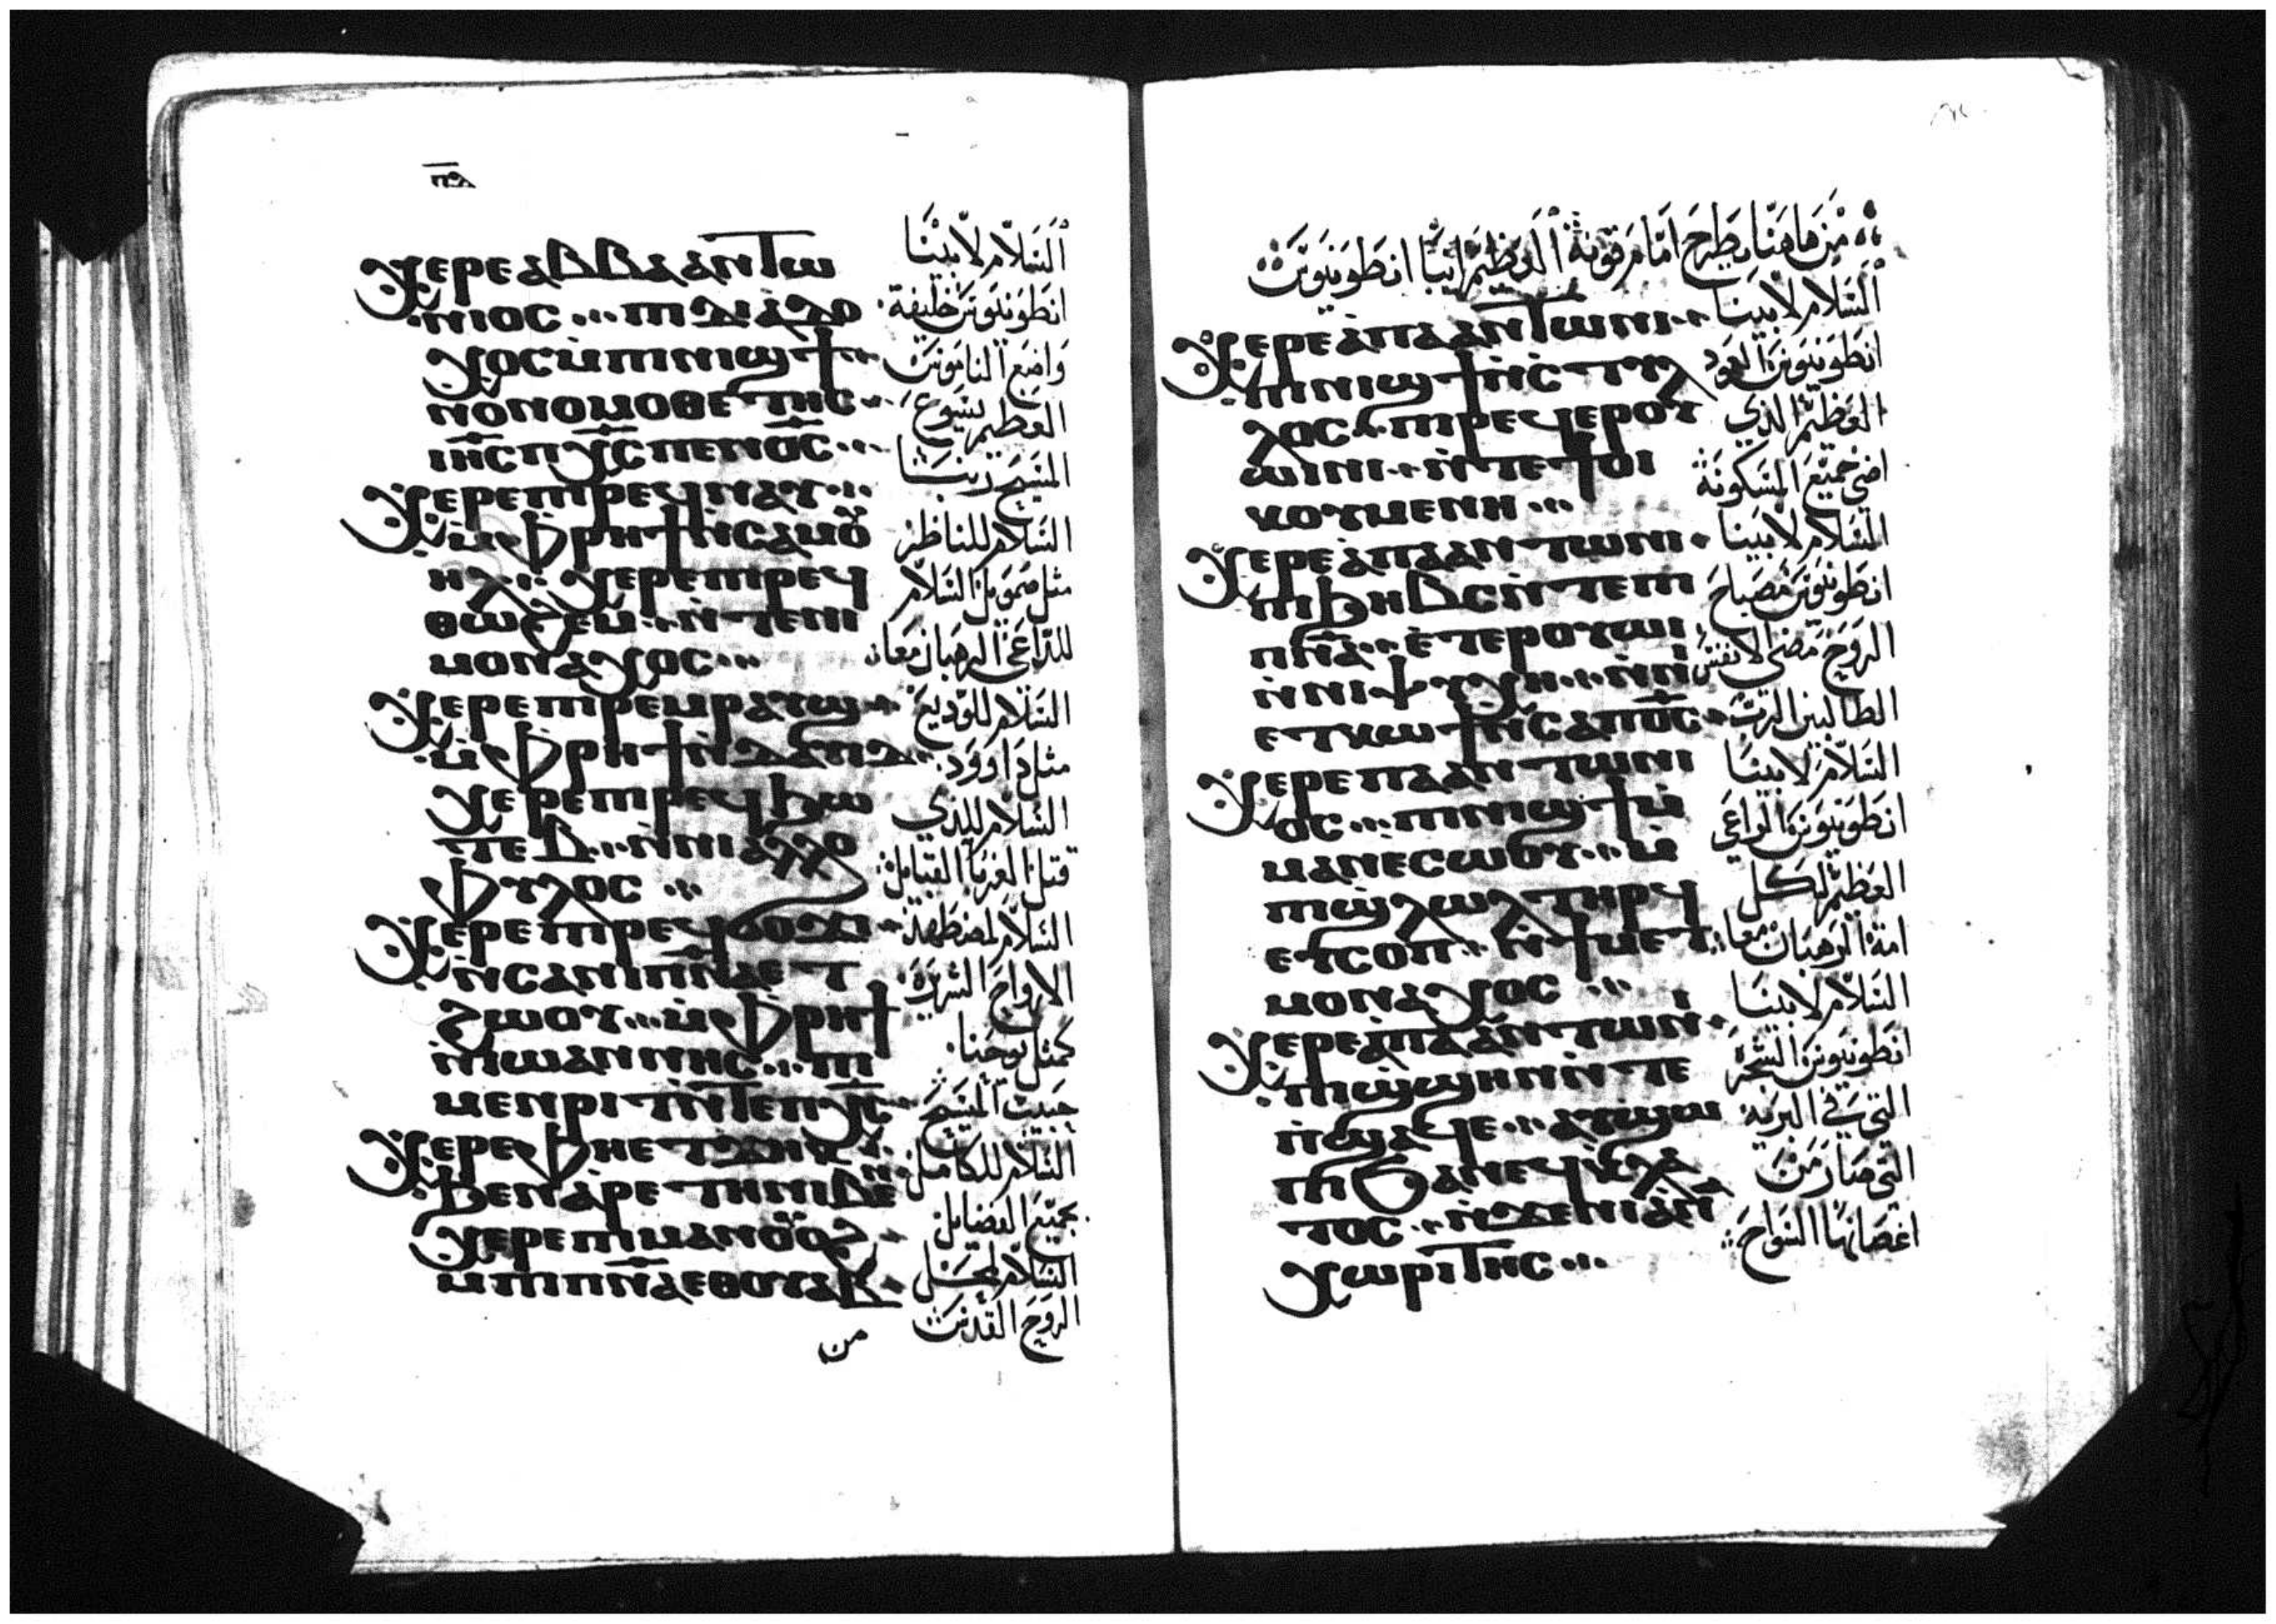 ⲡⲇ
Ⲭⲉⲣⲉ ⲁⲃⲃⲁ ⲁⲛⲧⲱ
ⲛⲓⲟⲥ ⲡⲓⲇⲓⲁⲇⲟ
ⲭⲟⲥ ⲙ̀ⲡⲓⲛⲓϣϯ
ⲛⲟⲛⲟⲙⲟⲑⲉⲧⲏⲥ
ⲓⲏ̅ⲥ ⲡⲭ̅ⲥ ⲡⲉⲛⲟ̅ⲥ
Ⲭⲉⲣⲉ ⲡⲓⲣⲉϥⲛⲁⲩ
ⲙ̀ⲫⲣⲏϯ ⲛ̀ⲥⲁⲙⲟⲩ
ⲏⲗ ⲭⲉⲣⲉ ⲡⲓⲣⲉϥ
ⲑⲱϩⲉⲙ ⲛ̀ⲧⲉ ⲛⲓ
ⲙⲟⲛⲁⲭⲟⲥ
Ⲭⲉⲣⲉ ⲡⲓⲣⲉⲙⲣⲁⲩϣ
ⲙ̀ⲫⲣⲏϯ ⲛ̀ⲇⲁⲩⲓⲇ
ⲭⲉⲣⲉ ⲡⲓⲣⲉϥϧⲱ
ⲧⲉⲃ ⲛ̀ⲛⲓⲁⲗⲗⲟ
ⲫⲩⲗⲟⲥ
Ⲭⲉⲣⲉ ⲡⲓⲣⲉϥϭⲟϫⲓ
ⲛ̀ⲥⲁ ⲛⲓⲡⲛ̅ⲁ ⲉⲧ
ϩⲱⲟⲩ ⲙ̀ⲫⲣⲏϯ
ⲛ̀ⲓⲱⲁⲛⲛⲏⲥ ⲡⲓ
ⲙⲉⲛⲣⲓⲧ ⲛ̀ⲧⲉ ⲡⲭ̅ⲥ
Ⲭⲉⲣⲉ ⲫⲏⲉⲧϫⲏⲕ
ϧⲉⲛ ⲁⲣⲉⲧⲏ ⲛⲓⲃⲉⲛ
ⲭⲉⲣⲉ ⲡⲓⲙⲁⲛϭⲟⲓⲗⲓ
ⲙ̀ⲡⲓⲡⲛ̅ⲁ ⲉⲑⲟⲩⲁⲃ
السلام لابينا
انطونيوس خليفة
واضع الناموس
العظيم يسوع
المسيح ربنا
السلام للناظر
مثل صموييل السلام
للداعي الرهبان معا
السلام للوديع
مثل داوود
السلام للذي
قتل الغربا القبايل
السلام لمضطهد
الارواح الشريرة
كمثل يوحنا
حبيب المسيح
السلام للكامل
بجميع الفضايل
السلام لمحل
الروح القدس
من
من هاهنا يطرح امام قونة العظيم ابينا انطونيوس
Ⲭⲉⲣⲉ ⲁⲡⲁ ⲁⲛⲧⲱⲛⲓ
ⲡⲓⲛⲓϣϯ ⲛ̀ⲥⲧⲩⲗ
ⲗⲟⲥ ⲡⲓⲣⲉϥⲉⲣⲟⲩ
ⲱⲓⲛⲓ ⲛ̀ⲧⲉ ϯⲟⲓ
ⲕⲟⲩⲙⲉⲛⲏ
Ⲭⲉⲣⲉ ⲁⲡⲁ ⲁⲛⲧⲱⲛⲓ
ⲡⲓϧⲏⲃⲥ ⲛ̀ⲧⲉ ⲡⲓ
ⲡⲛ̅ⲁ ⲉⲧⲉⲣⲟⲩⲱⲓⲛⲓ
ⲛ̀ⲛⲓⲯⲩⲭⲏ ⲛ̀ⲛⲏ
ⲉⲧⲕⲱϯ ⲛ̀ⲥⲁ ⲡⲟ̅ⲥ
Ⲭⲉⲣⲉ ⲡⲁ ⲁⲛⲧⲱⲛⲓ
ⲟⲥ ⲡⲓⲛⲓϣϯ ⲙ̀
ⲙⲁⲛⲉⲥⲱⲟⲩ ⲙ̀
ⲡⲓϣⲗⲱⲗ ⲧⲏⲣϥ
ⲉⲩⲥⲟⲡ ⲛ̀ϯⲙⲉⲧ
ⲙⲟⲛⲁⲭⲟⲥ
Ⲭⲉⲣⲉ ⲁⲡⲁ ⲁⲛⲧⲱⲛⲓ
ⲡⲓϣϣⲏⲛ ⲛ̀ⲧⲉ
ⲡϣⲁϥⲉ ⲁⲩϣⲱ
ⲡⲓ ϧⲁ ⲛⲉϥⲕⲗⲁ
ⲧⲟⲥ ⲛ̀ϫⲉ ⲛⲓⲁⲛⲁ
ⲭⲱⲣⲓⲧⲏⲥ
السلام لابينا
انطونيوس العمود
العظيم الذي
اضى جميع المسكونة
السلام لابينا
انطونيوس مصباح
الروح مضى لانفس
الطالبين الرب
السلام لابينا
انطونيوس الراعي
العظيم لكل
امة الرهبان معا
السلام لابينا
انطونيوس الشجرة
التي في البرية
التي صار من
اغصانها السواح